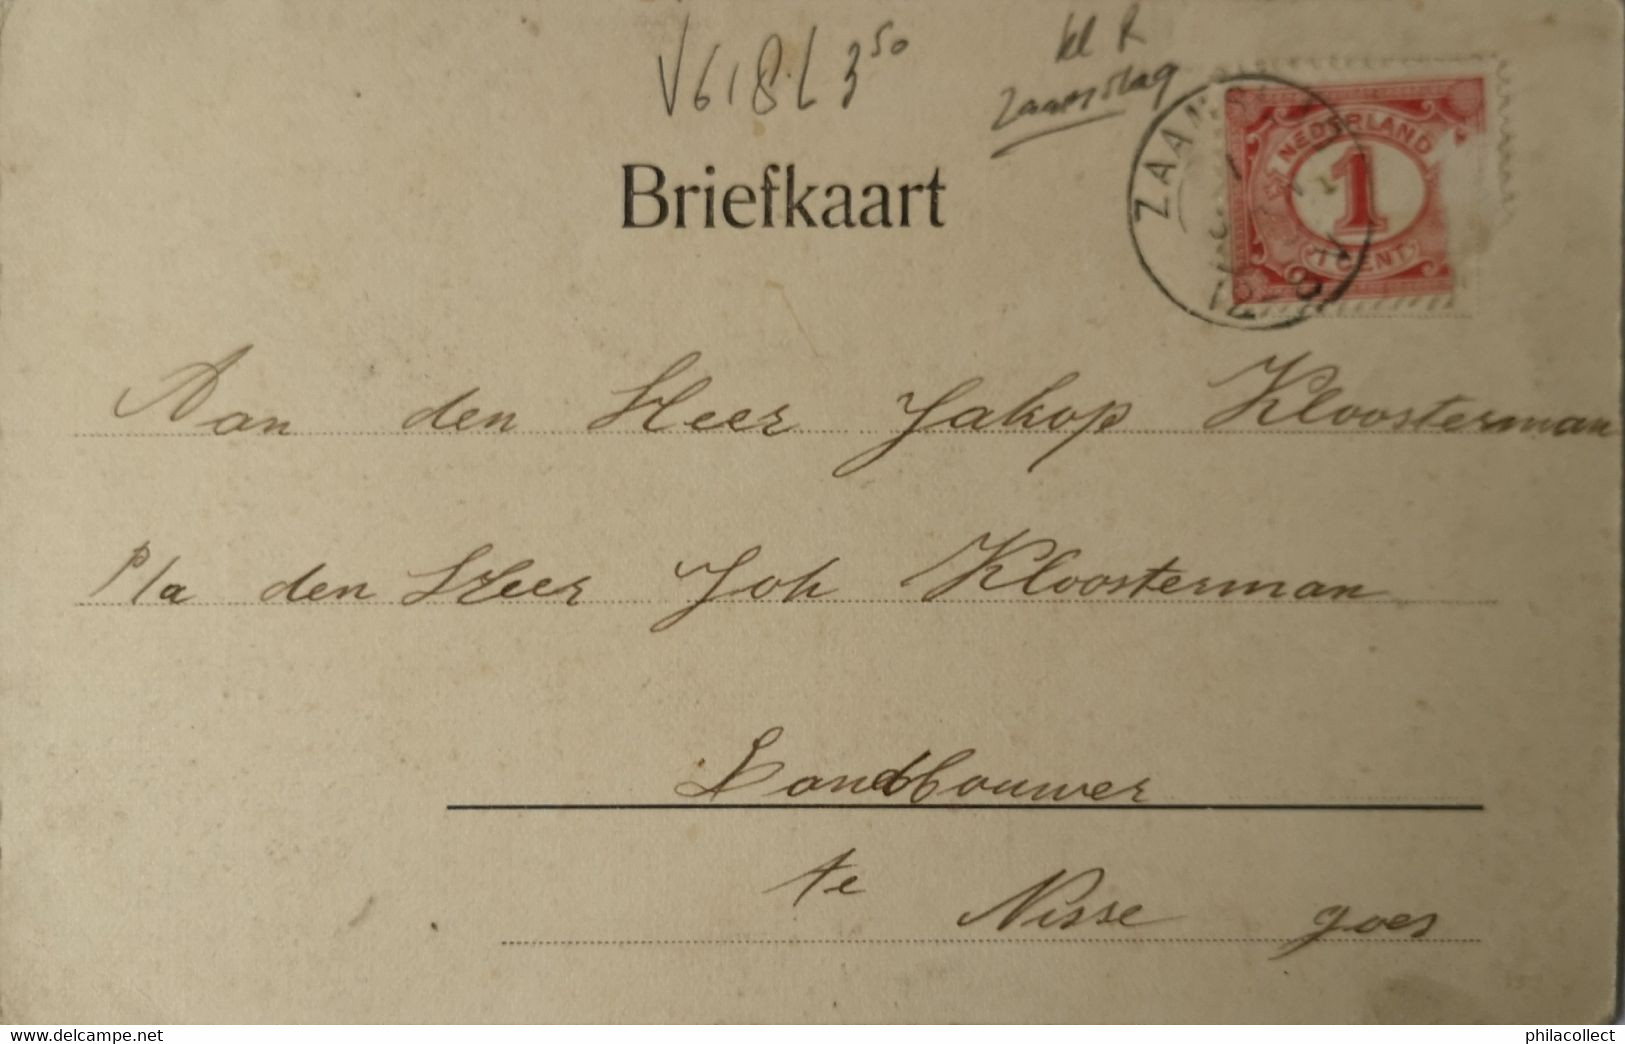 V618L 3 50
kl R
Zaamslag
ZAAMSLAG
12-8
NEDERLAND
1
1 CENT
Briefkaart
Aan den Heer Jakop Kloosterman
P/a den Heer Joh Kloosterman
Landbouwer
te Nisse goes
Delcampe.net
philacollect